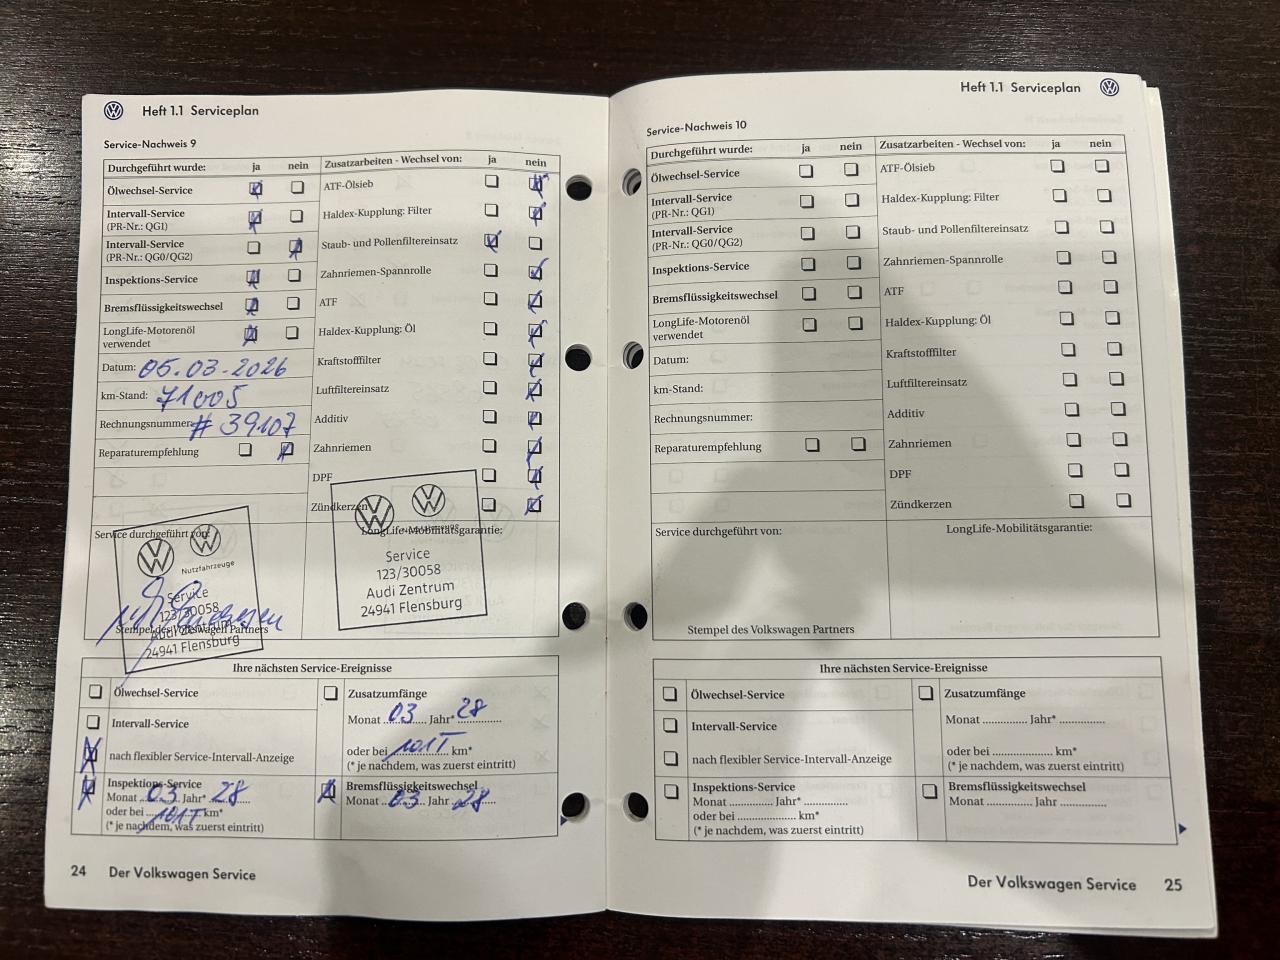 Heft 1.1 Serviceplan
Service-Nachweis 9
Durchgeführt wurde: ja nein
Ölwechsel-Service
Intervall-Service
(PR-Nr.: QG1)
Intervall-Service
(PR-Nr.: QG0/QG2)
Inspektions-Service
Bremsflüssigkeitswechsel
LongLife-Motorenöl
verwendet
Datum: 05.03.2026
km-Stand: 71005
Rechnungsnummer: # 39107
Reparaturempfehlung
Zusatzarbeiten - Wechsel von: ja nein
ATF-Ölsieb
Haldex-Kupplung: Filter
Staub- und Pollenfiltereinsatz
Zahnriemen-Spannrolle
ATF
Haldex-Kupplung: Öl
Kraftstofffilter
Luftfiltereinsatz
Additiv
Zahnriemen
DPF
Zündkerzen
Service durchgeführt von:
Nutzfahrzeuge
Service
123/30058
Audi Zentrum
24941 Flensburg
Stempel des Volkswagen Partners
LongLife-Mobilitätsgarantie:
Nutzfahrzeuge
Service
123/30058
Audi Zentrum
24941 Flensburg
Ihre nächsten Service-Ereignisse
Ölwechsel-Service
Intervall-Service
nach flexibler Service-Intervall-Anzeige
Inspektions-Service
Monat 03 Jahr* 28
oder bei 101T km*
(* je nachdem, was zuerst eintritt)
Zusatzumfänge
Monat 03 Jahr* 28
oder bei 101T km*
(* je nachdem, was zuerst eintritt)
Bremsflüssigkeitswechsel
Monat 03 Jahr 28
24 Der Volkswagen Service
Heft 1.1 Serviceplan
Service-Nachweis 10
Durchgeführt wurde: ja nein
Ölwechsel-Service
Intervall-Service
(PR-Nr.: QG1)
Intervall-Service
(PR-Nr.: QG0/QG2)
Inspektions-Service
Bremsflüssigkeitswechsel
LongLife-Motorenöl
verwendet
Datum:
km-Stand:
Rechnungsnummer:
Reparaturempfehlung
Zusatzarbeiten - Wechsel von: ja nein
ATF-Ölsieb
Haldex-Kupplung: Filter
Staub- und Pollenfiltereinsatz
Zahnriemen-Spannrolle
ATF
Haldex-Kupplung: Öl
Kraftstofffilter
Luftfiltereinsatz
Additiv
Zahnriemen
DPF
Zündkerzen
Service durchgeführt von:
Stempel des Volkswagen Partners
LongLife-Mobilitätsgarantie:
Ihre nächsten Service-Ereignisse
Ölwechsel-Service
Intervall-Service
nach flexibler Service-Intervall-Anzeige
Inspektions-Service
Monat ............... Jahr* ...............
oder bei .................... km*
(* je nachdem, was zuerst eintritt)
Zusatzumfänge
Monat ............... Jahr* ...............
oder bei .................... km*
(* je nachdem, was zuerst eintritt)
Bremsflüssigkeitswechsel
Monat ............... Jahr ...............
Der Volkswagen Service 25